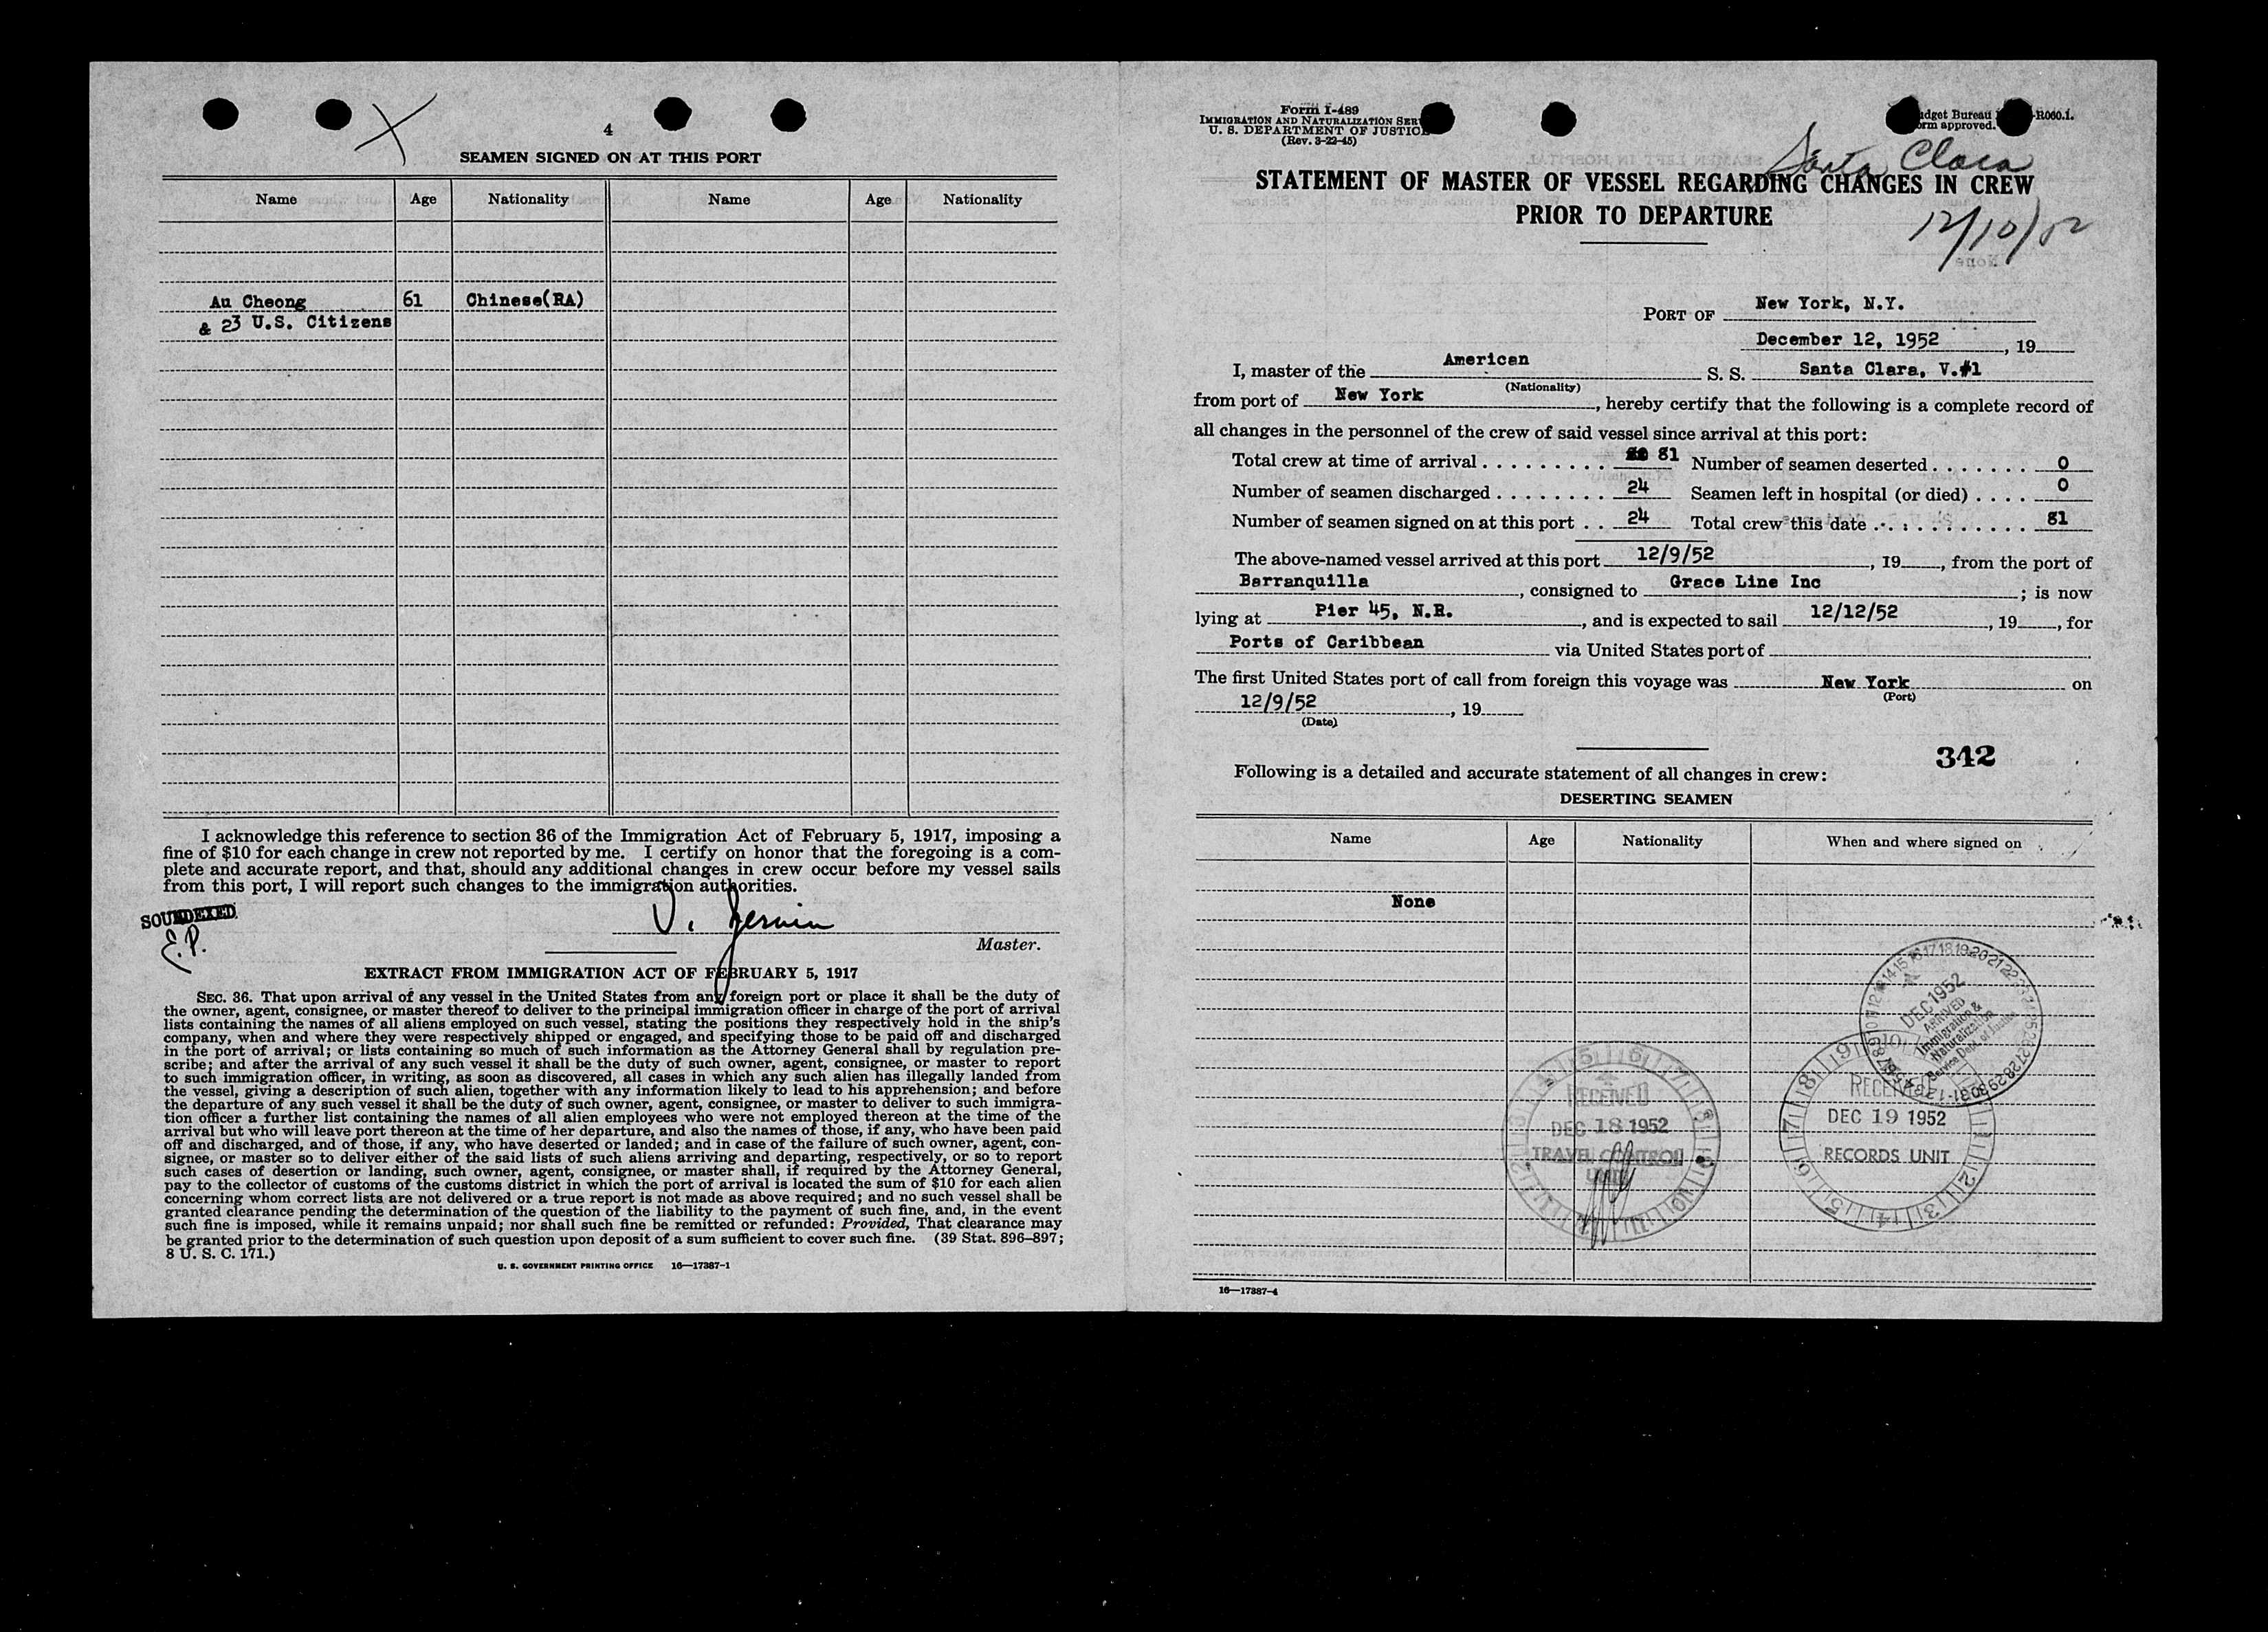 4
SEAMEN SIGNED ON AT THIS PORT
Name Age Nationality Name Age Nationality
Au Cheong 61 Chinese(RA)
& 23 U.S. Citizens
I acknowledge this reference to section 36 of the Immigration Act of February 5, 1917, imposing a
fine of $10 for each change in crew not reported by me. I certify on honor that the foregoing is a com-
plete and accurate report, and that, should any additional changes in crew occur before my vessel sails
from this port, I will report such changes to the immigration authorities.
SOUNDEXED
E.P.
Master.
EXTRACT FROM IMMIGRATION ACT OF FEBRUARY 5, 1917
SEC. 36. That upon arrival of any vessel in the United States from any foreign port or place it shall be the duty of
the owner, agent, consignee, or master thereof to deliver to the principal immigration officer in charge of the port of arrival
lists containing the names of all aliens employed on such vessel, stating the positions they respectively hold in the ship's
company, when and where they were respectively shipped or engaged, and specifying those to be paid off and discharged
in the port of arrival; or lists containing so much of such information as the Attorney General shall by regulation pre-
scribe; and after the arrival of any such vessel it shall be the duty of such owner, agent, consignee, or master to report
to such immigration officer, in writing, as soon as discovered, all cases in which any such alien has illegally landed from
the vessel, giving a description of such alien, together with any information likely to lead to his apprehension; and before
the departure of any such vessel it shall be the duty of such owner, agent, consignee, or master to deliver to such immigra-
tion officer a further list containing the names of all alien employees who were not employed thereon at the time of the
arrival but who will leave port thereon at the time of her departure, and also the names of those, if any, who have been paid
off and discharged, and of those, if any, who have deserted or landed; and in case of the failure of such owner, agent, con-
signee, or master so to deliver either of the said lists of such aliens arriving and departing, respectively, or so to report
such cases of desertion or landing, such owner, agent, consignee, or master shall, if required by the Attorney General,
pay to the collector of customs of the customs district in which the port of arrival is located the sum of $10 for each alien
concerning whom correct lists are not delivered or a true report is not made as above required; and no such vessel shall be
granted clearance pending the determination of the question of the liability to the payment of such fine, and, in the event
such fine is imposed, while it remains unpaid; nor shall such fine be remitted or refunded: Provided, That clearance may
be granted prior to the determination of such question upon deposit of a sum sufficient to cover such fine. (39 Stat. 896–897;
8 U. S. C. 171.)
U. S. GOVERNMENT PRINTING OFFICE 16—17387-1
Form I-489
IMMIGRATION AND NATURALIZATION SER
U. S. DEPARTMENT OF JUSTICE
(Rev. 3-22-45)
dget Bureau -R060.1.
orm approved.
Santa Clara
STATEMENT OF MASTER OF VESSEL REGARDING CHANGES IN CREW
PRIOR TO DEPARTURE
12/10/52
PORT OF New York, N.Y.
December 12, 1952, 19
I, master of the American S. S. Santa Clara, V.#1
(Nationality)
from port of New York, hereby certify that the following is a complete record of
all changes in the personnel of the crew of said vessel since arrival at this port:
Total crew at time of arrival 81 Number of seamen deserted 0
Number of seamen discharged 24 Seamen left in hospital (or died) 0
Number of seamen signed on at this port 24 Total crew this date 81
The above-named vessel arrived at this port 12/9/52, 19, from the port of
Barranquilla, consigned to Grace Line Inc; is now
lying at Pier 45, N.R., and is expected to sail 12/12/52, 19, for
Ports of Caribbean via United States port of
The first United States port of call from foreign this voyage was New York on
(Port)
12/9/52, 19
(Date)
342
Following is a detailed and accurate statement of all changes in crew:
DESERTING SEAMEN
Name Age Nationality When and where signed on
None
DEC 1952
ARRIVED
Immigration &
Naturalization
Service Dept. of Justice
RECEIVED
DEC 18 1952
TRAVEL CONTROL
UNIT
RECEIVED
DEC 19 1952
RECORDS UNIT
16—17387-4